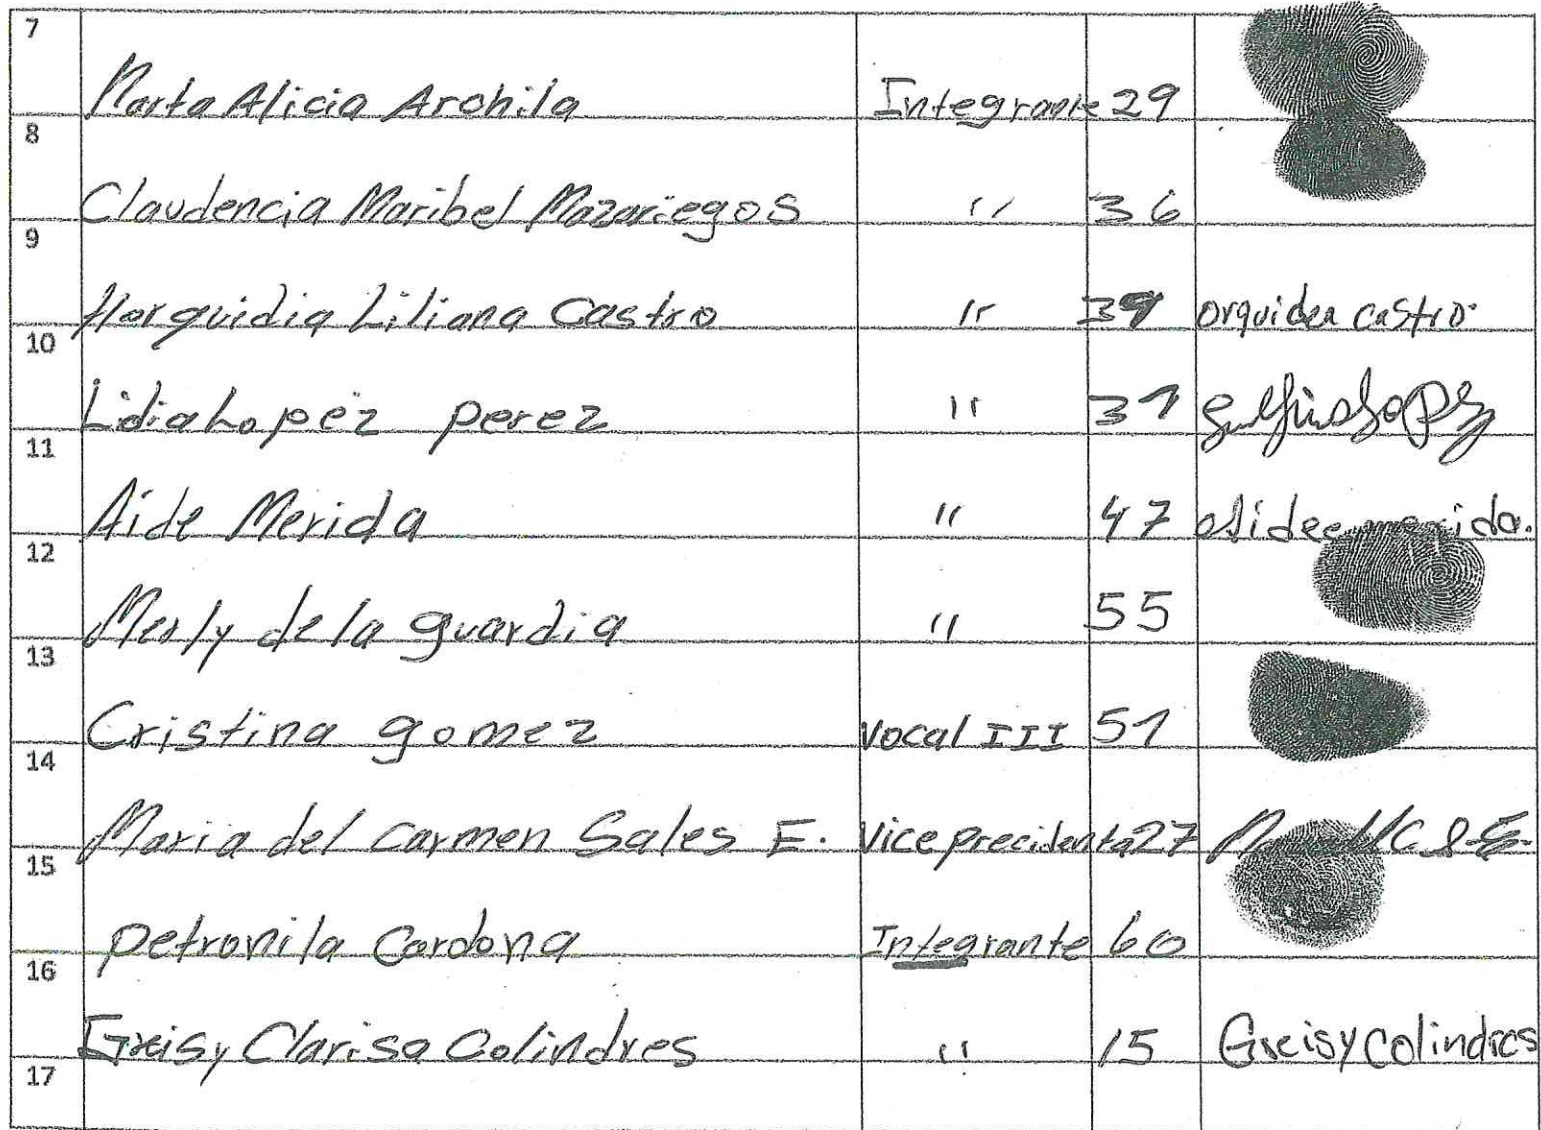 7 Marta Alicia Archila Integrante 29
8 Claudencia Maribel Mazariegos " 36
9 Horquidia Liliana Castro " 39 orquidea castro.
10 Lidia Lopez perez " 31
11 Aide Merida " 47 Aidee merida.
12 Merly de la guardia " 55
13 Cristina gomez Vocal III 51
14 Maria del Carmen Sales E. Vice precidenta 27
15 petronila Cardona Integrante 60
16 Greisy Clarisa Colindres " 15 Greisy Colindres
17